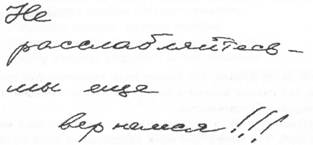 Не
расслабляйтесь –
мы еще
вернемся!!!